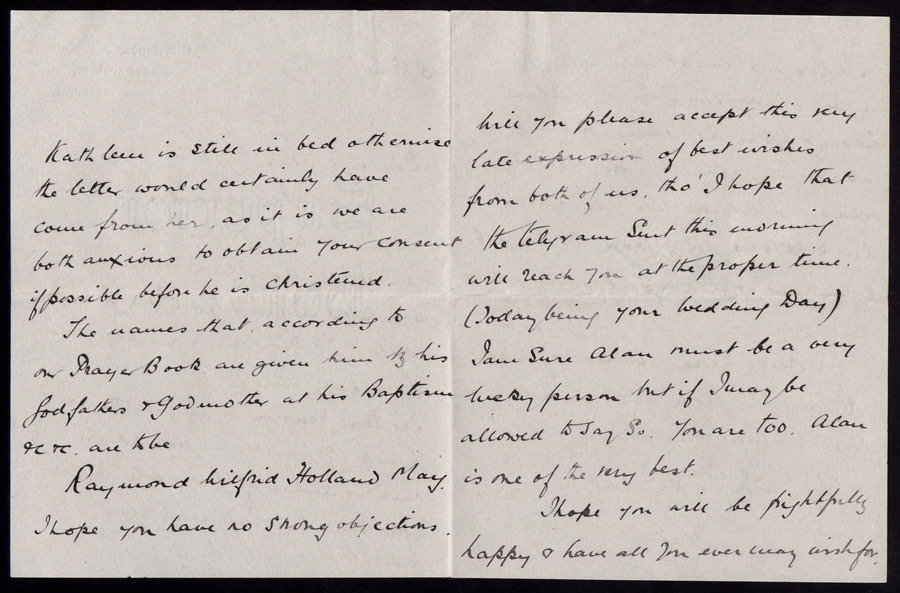 Kathleen is still in bed otherwise
the letter would certainly have
come from her, as it is we are
both anxious to obtain your consent
if possible before he is christened.
The names that according to
our Prayer Book are given him by his
Godfathers & Godmother at his Baptism
&c &c. are to be
Raymond Wilfrid Holland May.
I hope you have no strong objections.
Will you please accept this very
late expression of best wishes
from both of us, tho' I hope that
the telegram sent this morning
will reach you at the proper time.
(Today being your Wedding Day)
I am sure Alan must be a very
lucky person but if I may be
allowed to say so. You are too. Alan
is one of the very best.
I hope you will be frightfully
happy & have all you ever may wish for.